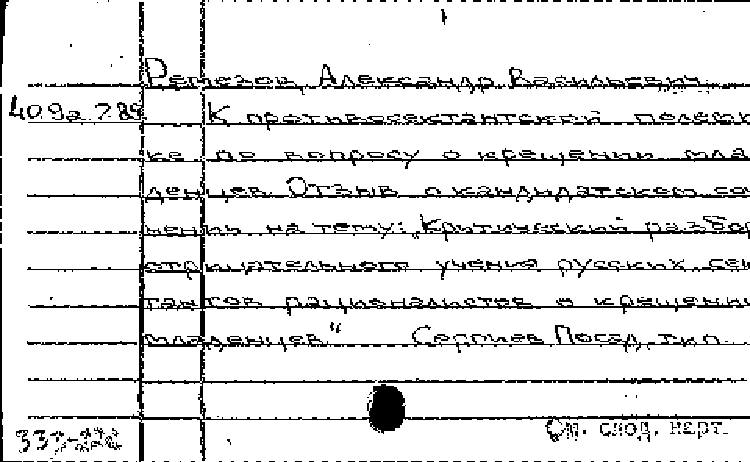 Ремезов, Александр Васильевич
К противосектантской полеми
ке по вопросу о крещении мла
денцев. Отзыв о кандидатском со
нении на тему: "Критический разбор
отрицательного учения русских сек
тантов рационалистов о крещении
младенцев" Сергиев Посад, тип.
См. след. карт.